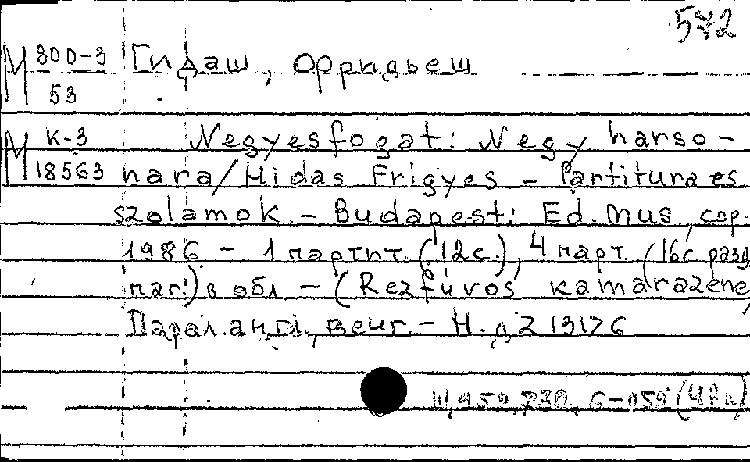 572
М 800-3 Гидаш, Фридьеш
53
М К-3 Negyesfogat: Negy harso-
18563 nara/Hidas Frigyes - Partitura es
szolamok. - Budapest: Ed. Mus, cop.
1986 - 1 партит. (12с.), 4 парт. (16с разд
паг.) в обл. - (Rezfúvós kamarazene)
Парал. англ., венг. - Н. д. Z 13176